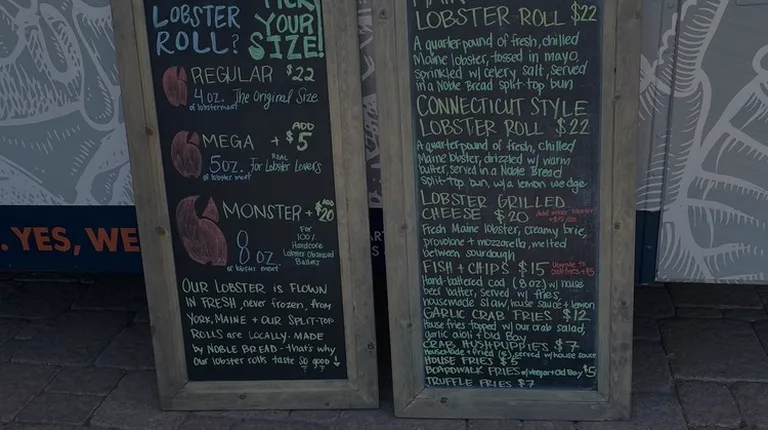 LOBSTER
ROLL?
PICK
YOUR
SIZE!
REGULAR $22
4 oz. The Original Size
of lobster meat
MEGA + ADD $5
5 oz. for REAL Lobster Lovers
of lobster meat
MONSTER + ADD $20
8 oz
of lobster meat
For
100%
Hardcore
Lobster Obsessed
OUR LOBSTER IS FLOWN
IN FRESH, never frozen, from
YORK, MAINE + OUR SPLIT-TOP
ROLLS are LOCALLY-MADE
by NOBLE BREAD - that's why
our lobster rolls taste so good!
LOBSTER ROLL $22
A quarter pound of fresh, chilled
Maine lobster, tossed in mayo,
sprinkled w/ celery salt, served
in a Noble Bread split-top bun
CONNECTICUT STYLE
LOBSTER ROLL $22
A quarter pound of fresh, chilled
Maine lobster, drizzled w/ warm
butter, served in a Noble Bread
split-top bun, w/ a lemon wedge
LOBSTER GRILLED
CHEESE $20
Fresh Maine lobster, creamy brie,
provolone + mozzarella, melted
between sourdough
FISH + CHIPS $15
Hand-battered cod (8 oz) w/ house
beer batter, served w/ fries,
housemade slaw, house sauce + lemon
GARLIC CRAB FRIES $12
House fries topped w/ our crab salad,
garlic aioli + Old Bay
CRAB HUSHPUPPIES $7
Housemade + fried (5), served w/ house sauce
HOUSE FRIES $5
BOARDWALK FRIES w/ vinegar + Old Bay $5
TRUFFLE FRIES $7
. YES, WE